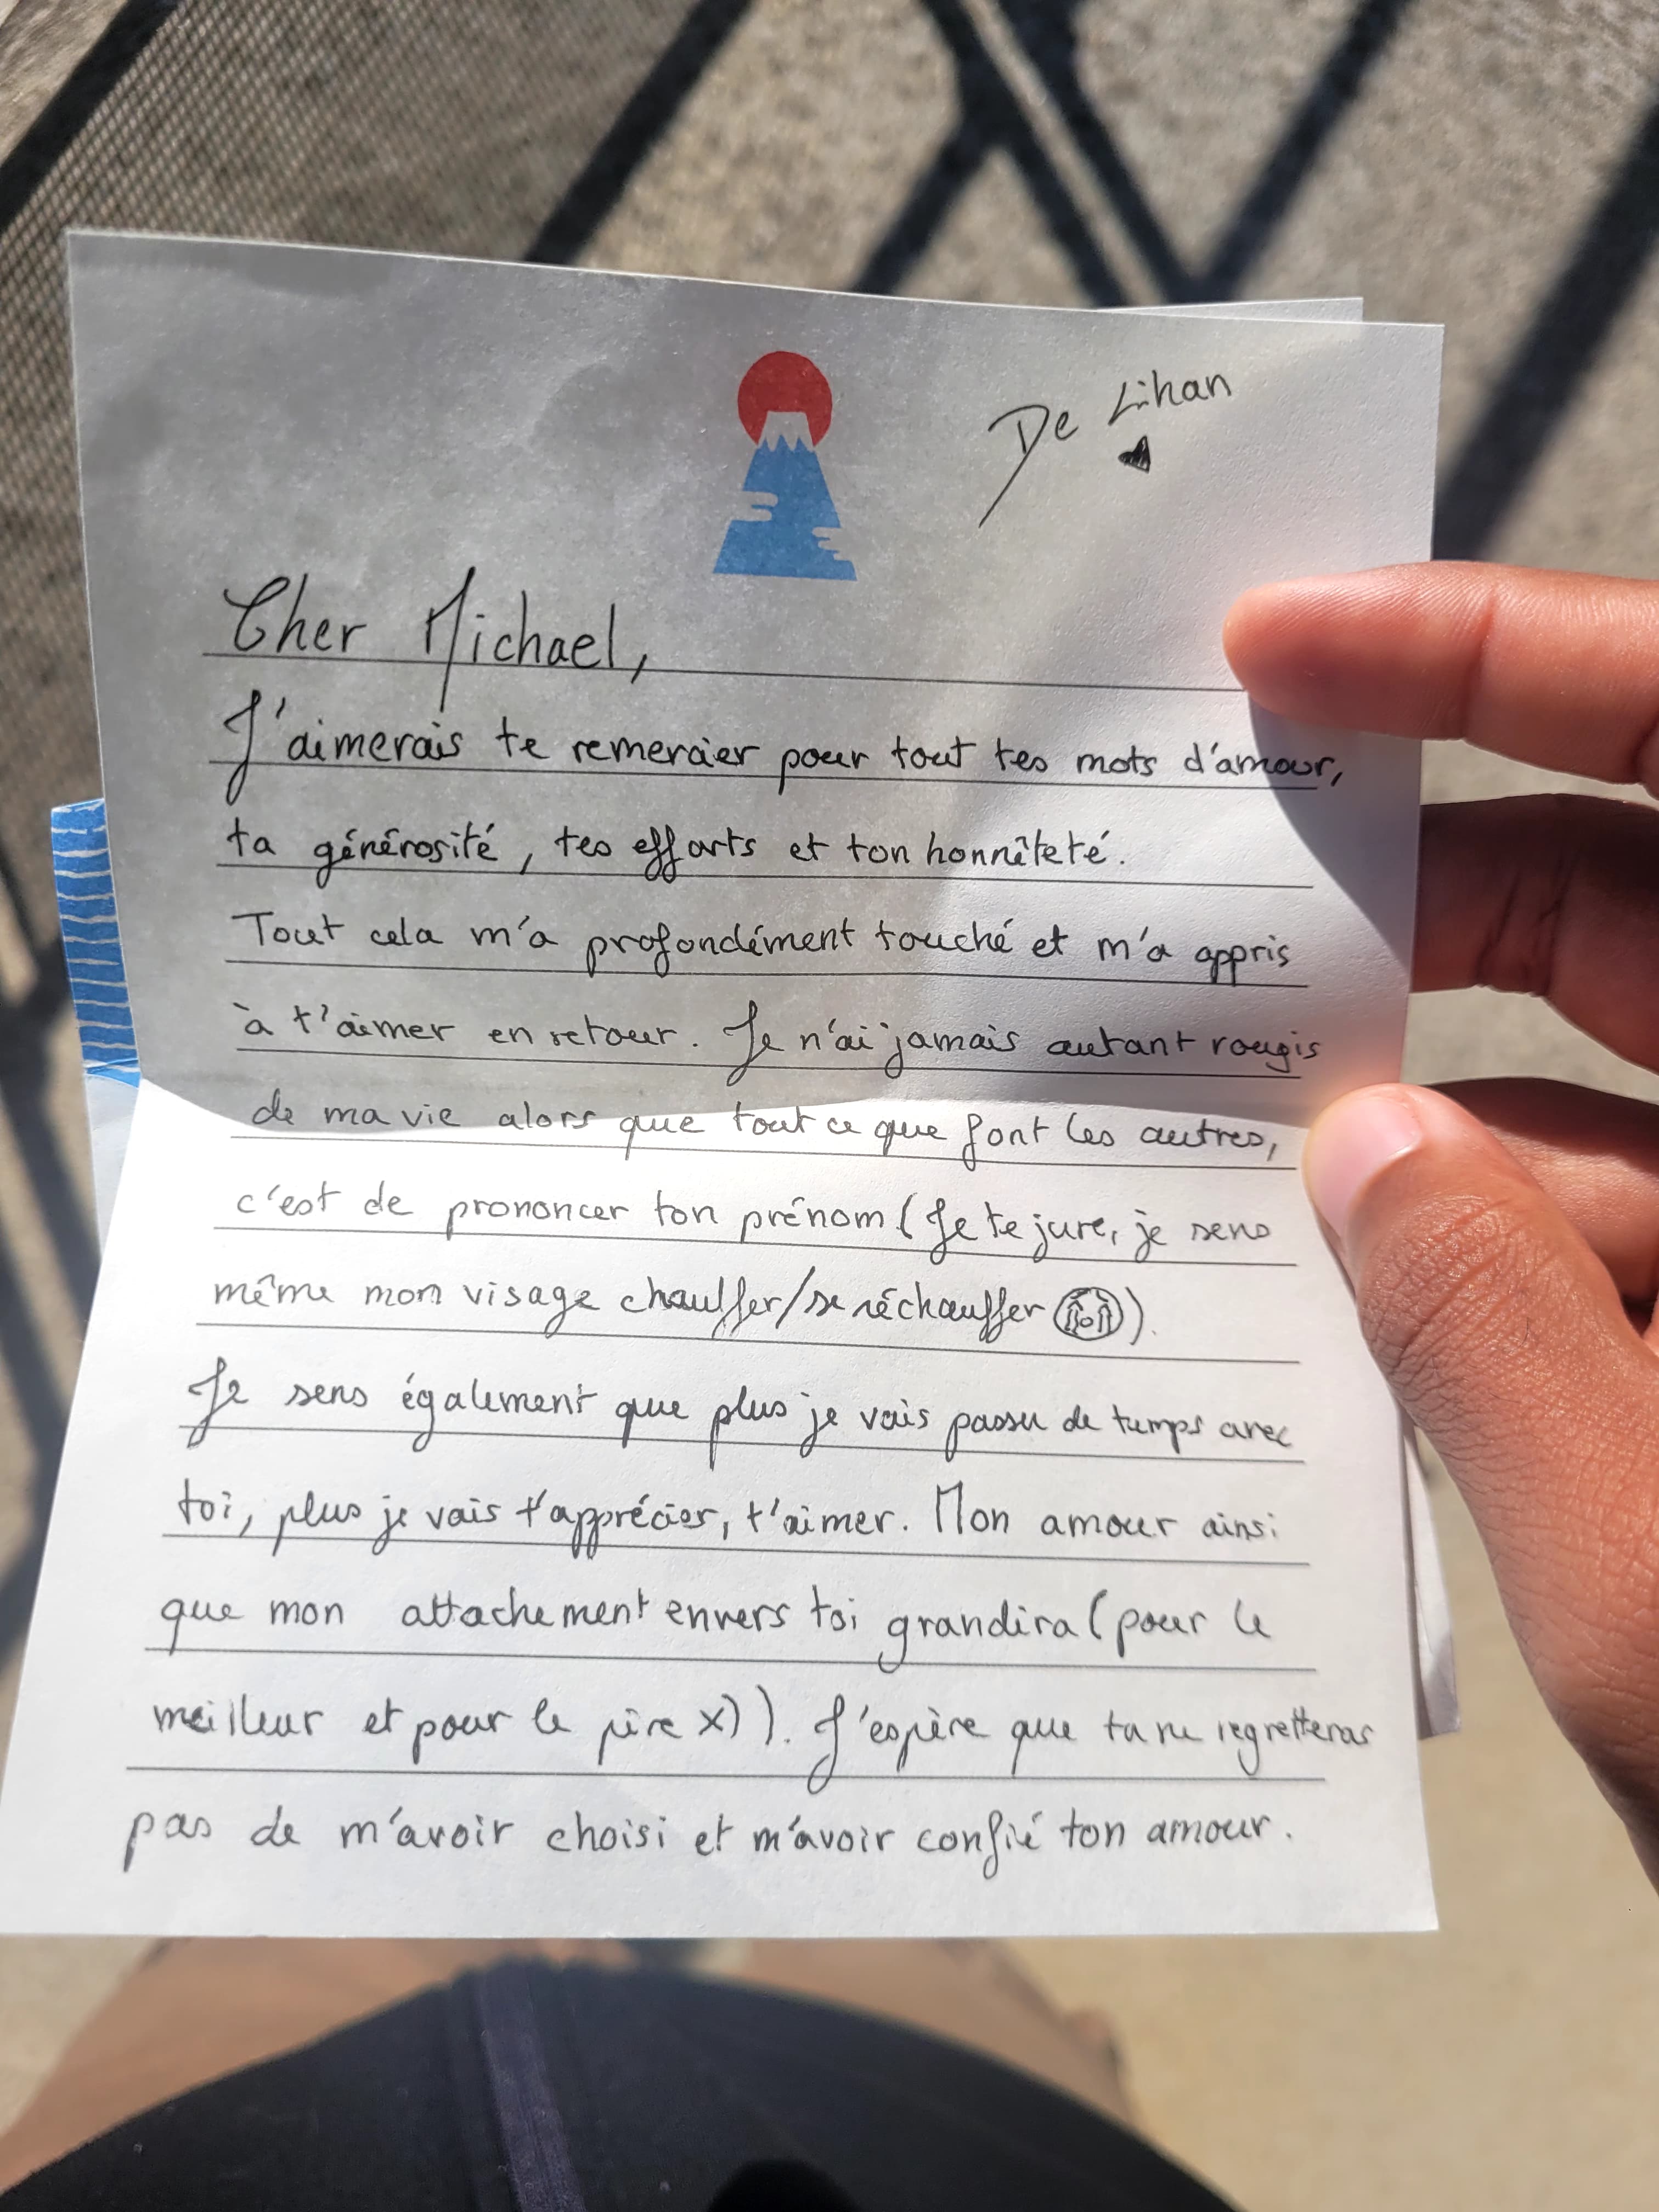 De Lihan
Cher Michael,
J'aimerais te remercier pour tout tes mots d'amour,
ta générosité, tes efforts et ton honnêteté.
Tout cela m'a profondément touché et m'a appris
à t'aimer en retour. Je n'ai jamais autant rougis
de ma vie alors que tout ce que font les autres,
c'est de prononcer ton prénom (Je te jure, je sens
même mon visage chauffer/se réchauffer).
Je sens également que plus je vais passer de temps avec
toi, plus je vais t'apprécier, t'aimer. Mon amour ainsi
que mon attachement envers toi grandira (pour le
meilleur et pour le pire x)). J'espère que tu ne regretteras
pas de m'avoir choisi et m'avoir confié ton amour.